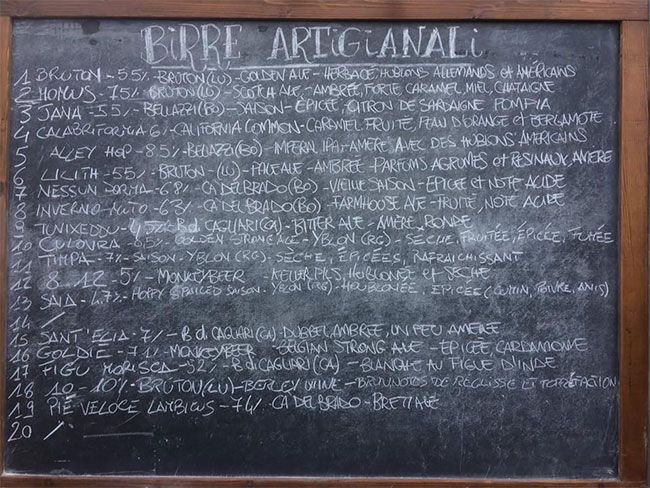 BIRRE ARTIGIANALI
1 BRUTON - 5.5% - BRUTON (LU) - GOLDEN ALE - HERBACE, HUBLONS ALLEMANDS et AMÉRICAINS
2 HOMUS - 7.5% - BRUTON (LU) - SCOTCH ALE - AMBRÉE, FORTE CARAMEL, MIEL, CHATAIGNE
3 JANA - 5.5% - BELLAZZI (BO) - SAISON - EPICÉE, CITRON DE SARDAIGNE POMPIA
4 CALABRIFORNIA 6% - CALIFORNIA COMMON - CARAMEL FRUITÉ, PEAU D'ORANGE et BERGAMOTE
5 ALLEY HOP - 8.5% - BELLAZZI (BO) - IMPERIAL IPA - AMÈRE AVEC DES HUBLONS AMÉRICAINS
6 LILITH - 5.5% - BRUTON - (LU) - PALE ALE - AMBRÉE - PARFUMS AGRUMES et RESINAUX, AMÈRE
7 NESSUN DORMA - 6.8% - CA DEL BRADO (BO) - VIEILLE SAISON - EPICÉE et NOTE ACIDE
8 INVERNO MUTO - 6.3% - CA DEL BRADO (BO) - FARMHOUSE ALE - FRUITÉ, NOTE ACIDE
9 TUNIXEDDU - 4,5% - B. di CAGLIARI (CA) - BITTER ALE - AMÈRE, RONDE
10 CULOVRIA - 8.5% - GOLDEN STRONG ALE - YBLON (RG) - SÈCHE, FRUITÉE, EPICÉE, FUMÉE
11 TIMPA - 7% - SAISON - YBLON (RG) - SÈCHE, EPICÉES, RAFRAICHISSANT
12 8.12 - 5% - MONKEYBEER - KELLER PILS, HOUBLONÉE et SÈCHE
13 SAIA - 4.7% - HOPPY SPICED SAISON - YBLON (RG) - HOUBLONÉE, EPICÉE (CUMIN, POIVRE, ANIS)
14 /
15 SANT'ELIA - 7% - B. di CAGLIARI (CA) - DUBBEL, AMBRÉE, UN PEU AMÈRE
16 GOLDIE - 7.1% - MONKEYBEER - BELGIAN STRONG ALE - EPICÉE, CARDAMOME
17 FIGU MORISCA - 5.2% - B. di CAGLIARI (CA) - BLANCHE AU FIGUE D'INDE
18 10 - 10% - BRUTON (LU) - BERLEY WINE - BRUN, NOTES DE REGLISSE ET TORRÉFACTION
19 PIÈ VELOCE LAMBICUS - 7.4% - CA DEL BRADO - BRETT ALE
20 /